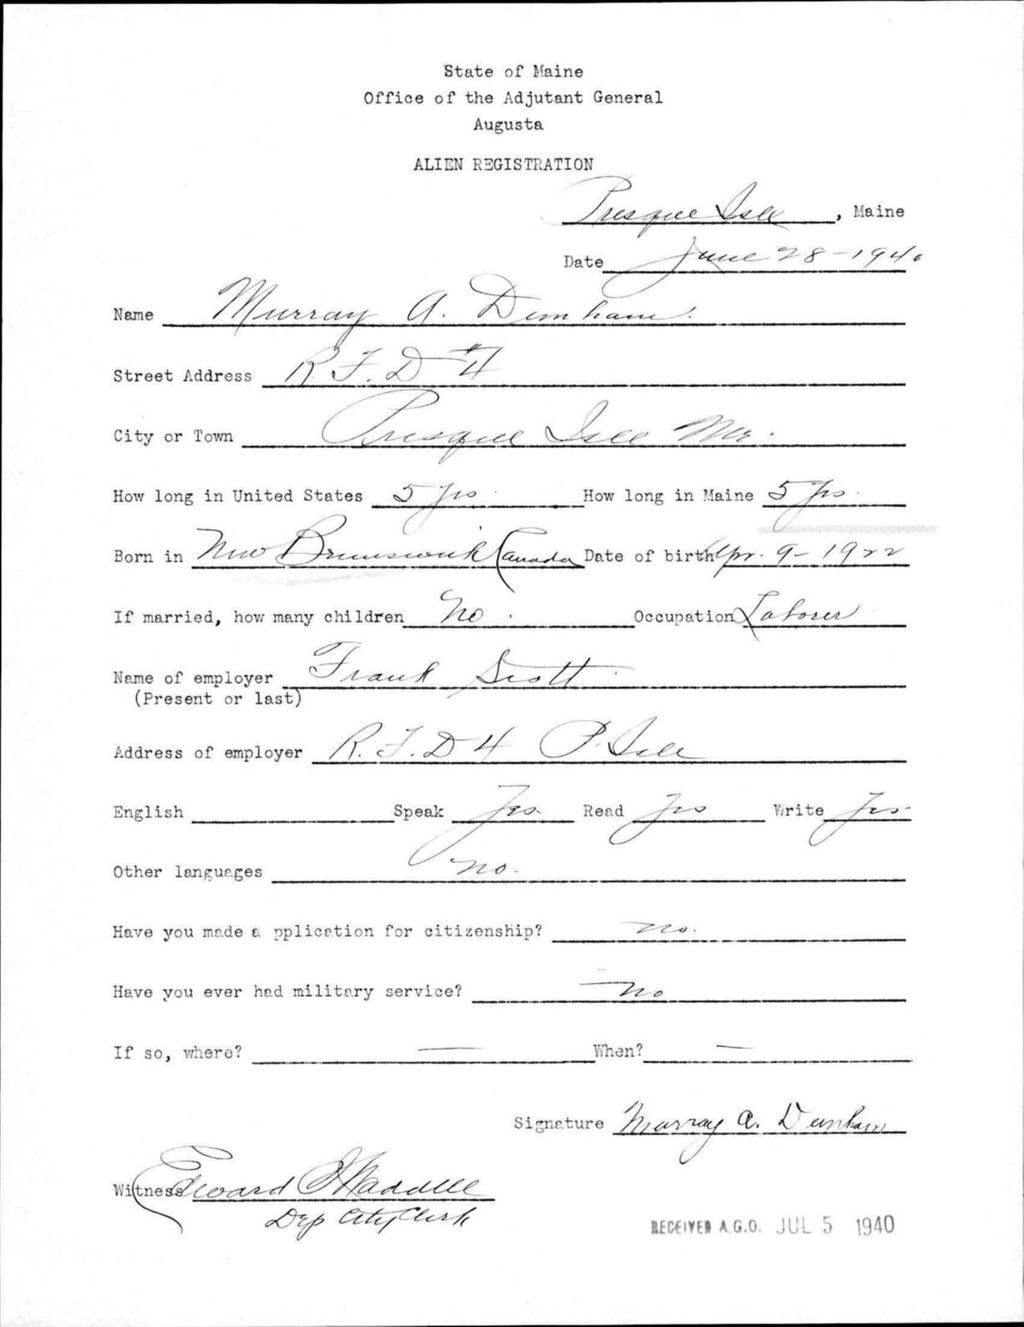 State of Maine
Office of the Adjutant General
Augusta
ALIEN REGISTRATION
Presque Isle, Maine
Date June 28 - 1940
Name Murray A. Dunham.
Street Address R.F.D #4
City or Town Presque Isle Me.
How long in United States 5 yrs. How long in Maine 5 yrs.
Born in New Brunswick Canada Date of birth Apr. 9 - 1922
If married, how many children No. Occupation Laborer
Name of employer Frank Scott.
(Present or last)
Address of employer R.F.D 4 P. Isle
English Speak Yes. Read Yes Write Yes.
Other languages no.
Have you made a pplication for citizenship? no.
Have you ever had military service? No
If so, where? — When? —
Signature Murray A. Dunham
Witness Edward Waddell
Dep City Clerk
RECEIVED A.G.O. JUL 5 1940